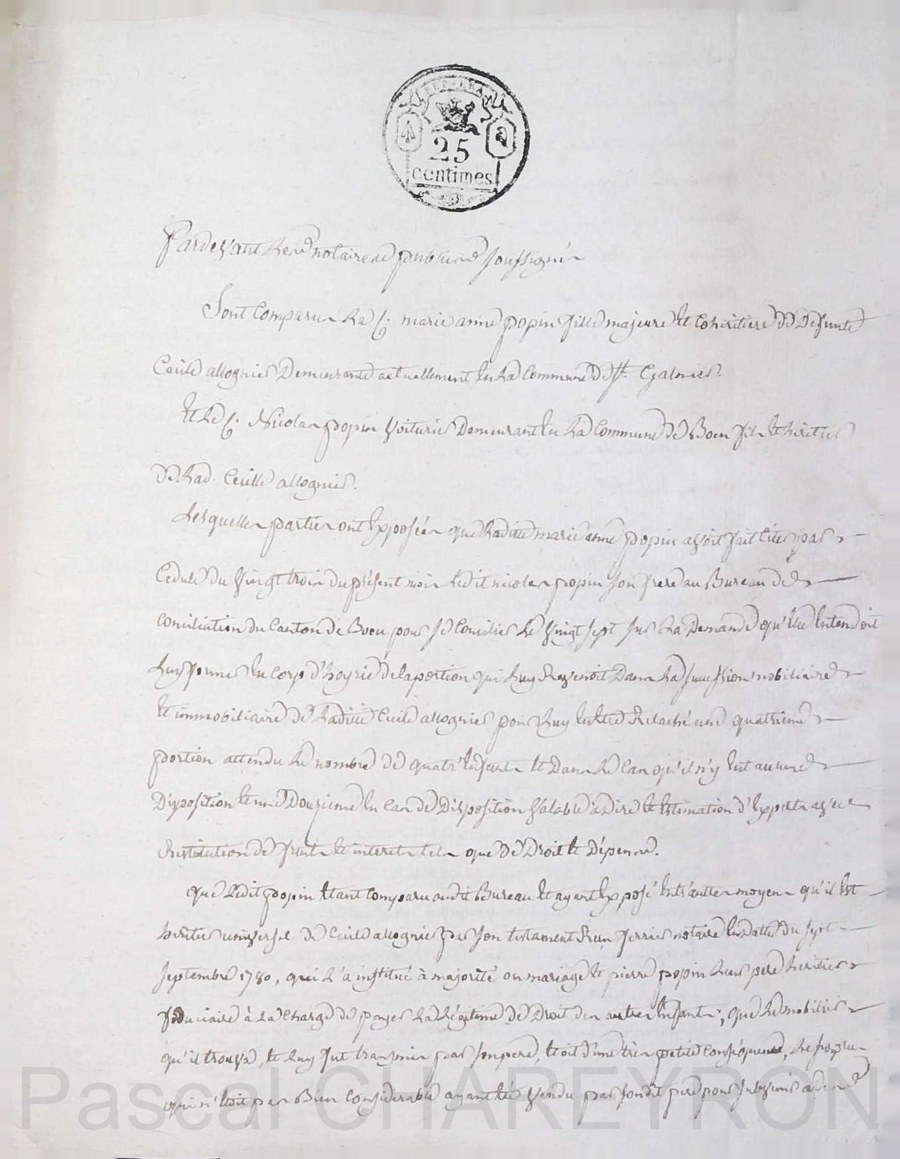 REP. FRA.
25
centimes
Pardevant le no.re notaire et public soussigné
Sont comparu la C. marie anne popin fille majeure et cohéritiere de Defunte
Cecile allognier Demeurante actuellement en la Commune de St. Galmier.
Et le C. Nicolas popin Voiturier Demeurant en la Commune de Boen fils et héritier
de lad. Cecille allognier.
Lesquelles parties ont Exposées que ladite marie anne popin avoit fait citer par
Cedule du vingt trois du présent mois ledit nicolas popin son frere au Bureau de
conciliation du Canton de Boen pour se Concilier le vingt sept sur la Demande qu'elle Entendoit
luy former En corp d'hoyrie de la portion qui luy Revenoit Dans la succession mobiliaire
et immobiliaire de ladite Cecile allognier pour luy Estre Relaché une quatrieme
portion attendu le nombre de quatr'Enfants et Dans le Cas qu'il n'y Eut aucune
Disposition et une Douzieme En cas de Disposition valable à dire et Estimation d'Experts avec
Restitution de fruits et interets tels que de Droit et Dépens.
que ledit popin Etant Comparu audit Bureau et ayant Exposé Entr'autre moyens qu'il Est
heritier universel de Cecile allognier par son testament Reçu notaire En datte du sept
septembre 1780, qui l'a institué à majorité ou mariage et pierre popin leur pere heritier
fiduciaire à la Charge de payer la Légitime de Droit des autres Enfants, que le mobilier
qu'il trouva, et luy fut transmis par son pere, étoit d'une tres petite Conséquence,
qui n'étoit pas Bien Considerable ayant été vendu par son dit pere pour subvenir
Pascal CHAREYRON